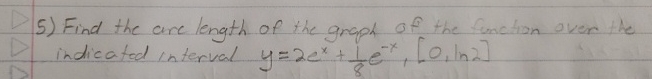 5) Find the arc length of the graph of the function over the
indicated interval y=2eˣ+⅛e⁻ˣ, [0,ln2]